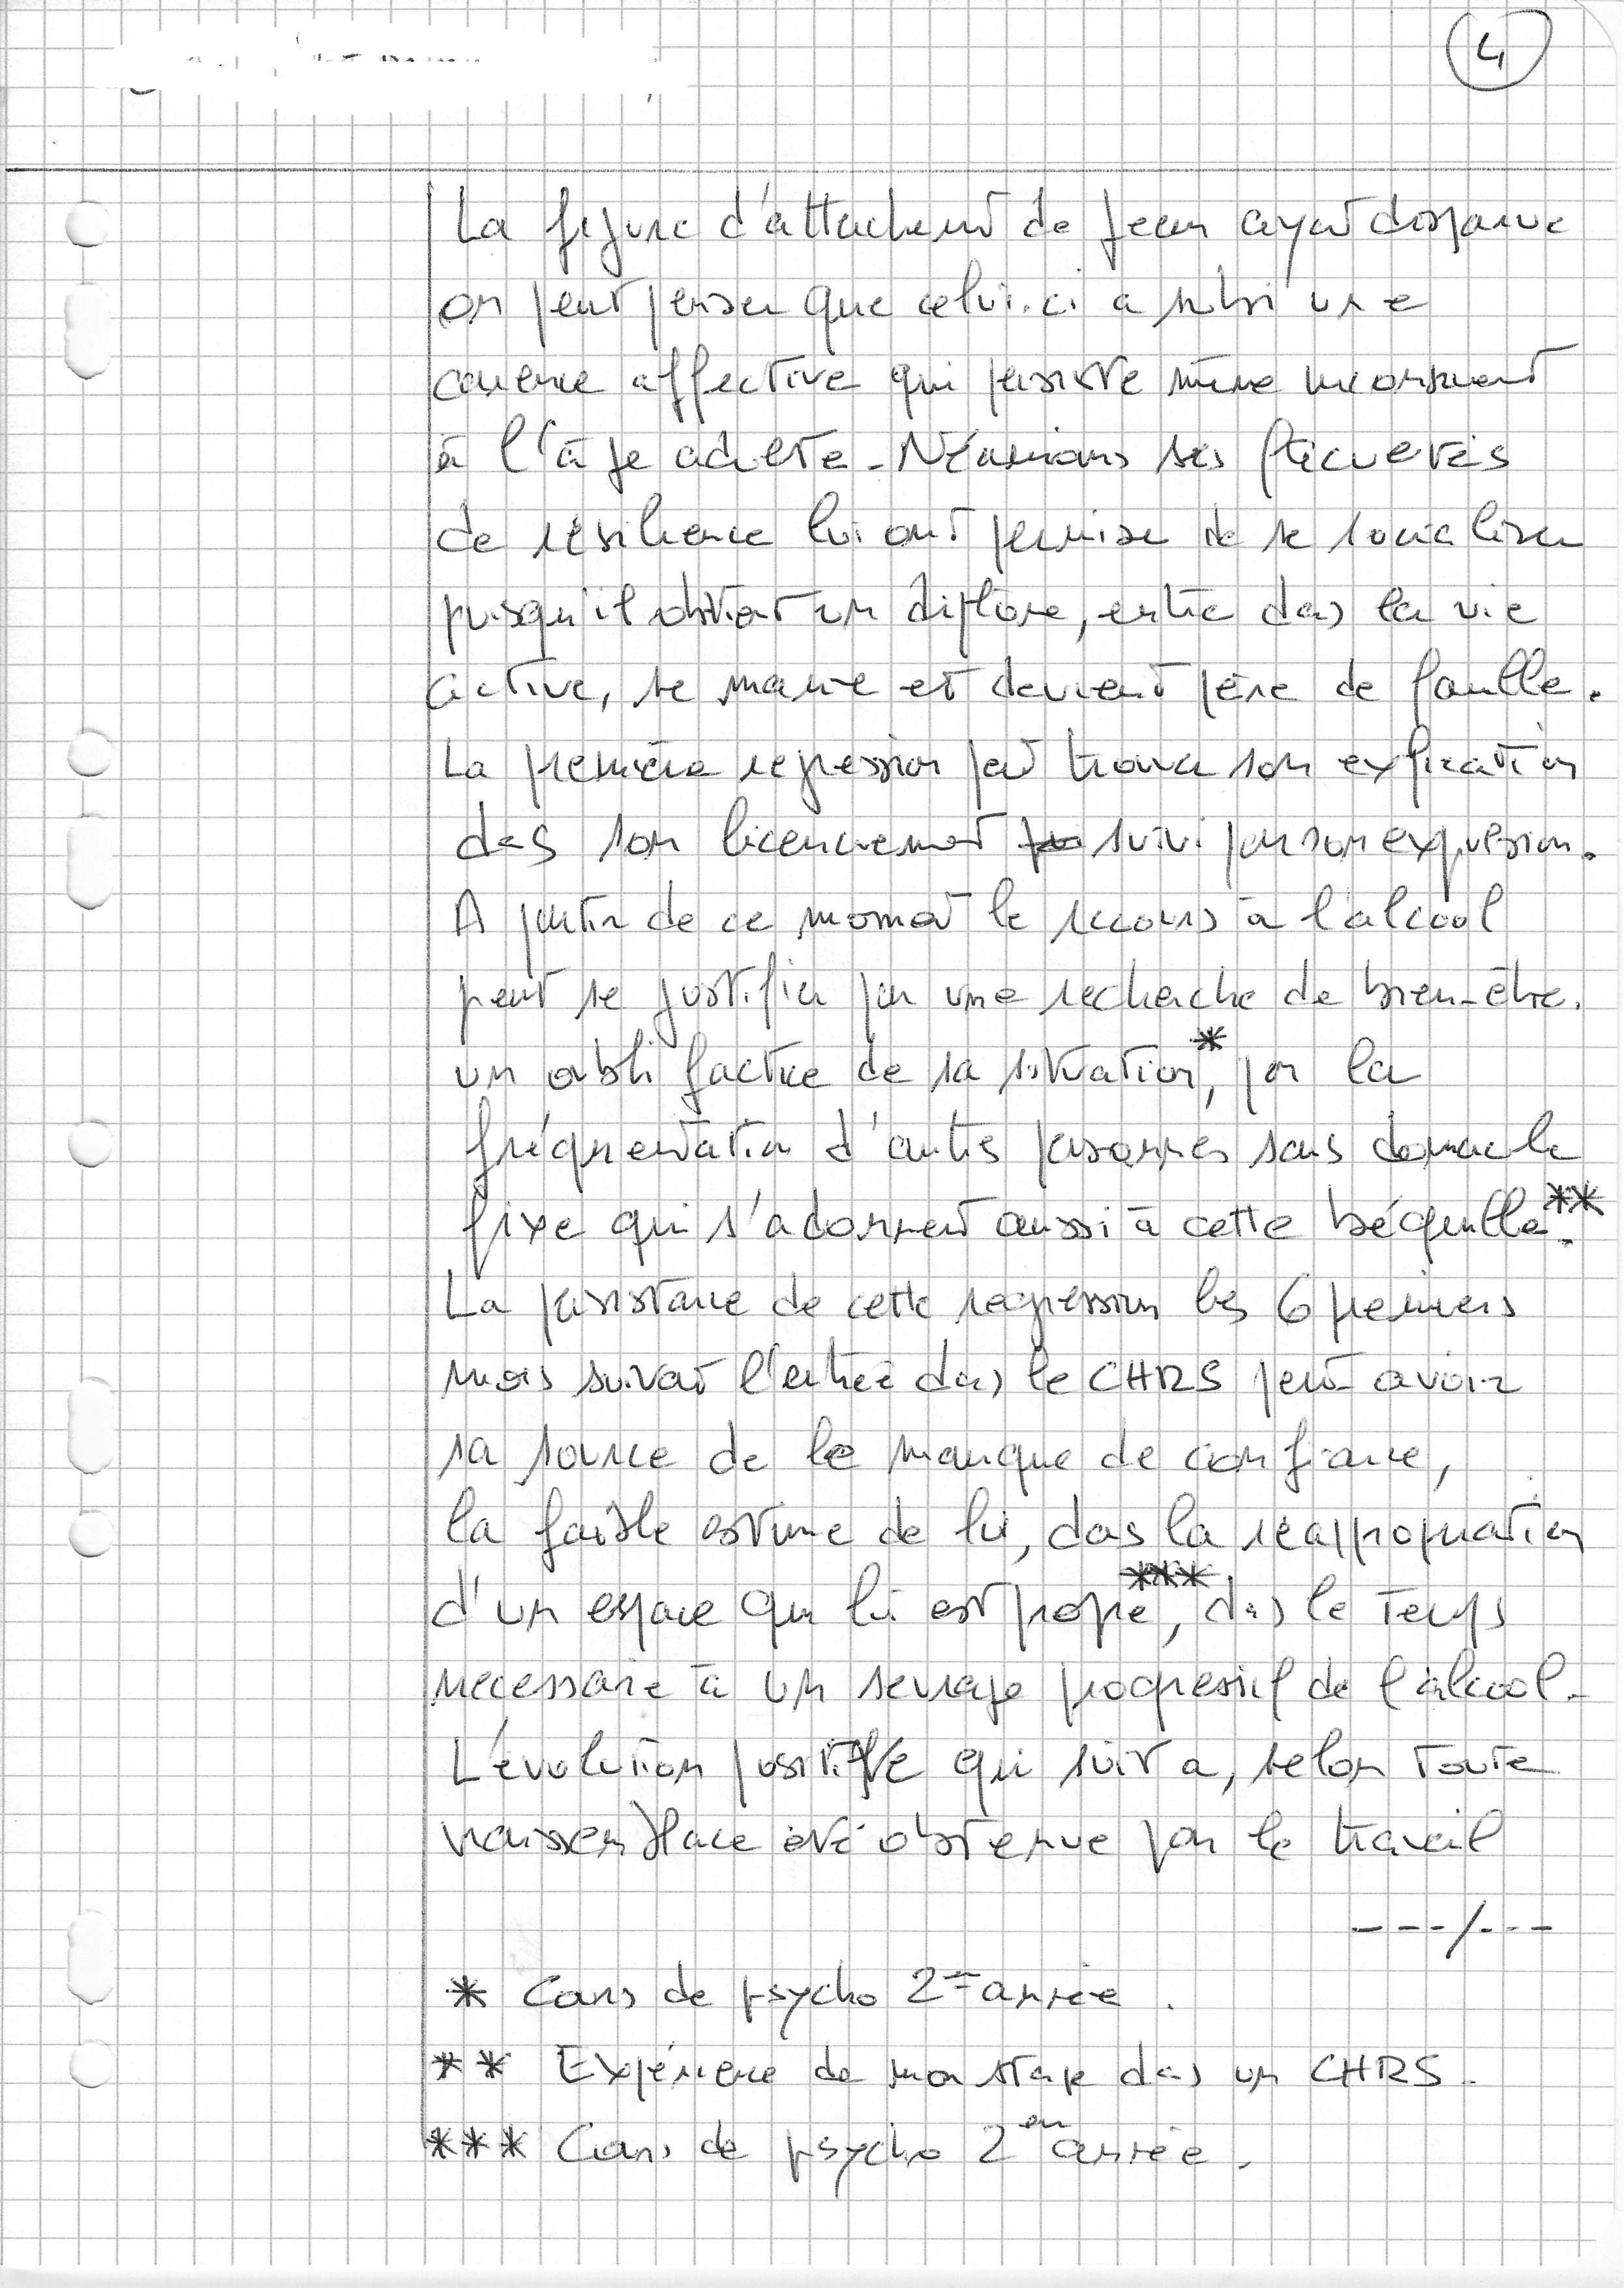 4
La figure d'attachement de Jean ayant disparue
on peut penser que celui-ci a subi une
carence affective qui persiste même inconsciement
à l'âge adulte. Néanmoins ses facultés
de résilience lui ont permise de se socialiser
puisqu'il obtient un diplôme, entre dans la vie
active, se marie et devient père de famille.
La première regression peut trouver son explication
dans son licenciement suivi par son expulsion.
A partir de ce moment le recours à l'alcool
peut se justifier par une recherche de bien-être.
un oubli factice de sa situation*, par la
fréquentation d'autres personnes sans domicile
fixe qui s'adonnent aussi à cette béquille**.
La persistance de cette regression les 6 premiers
mois suivant l'entrée dans le CHRS peut avoir
sa source de le manque de confiance,
la faible estime de lui, dans la réappropriation
d'un espace qui lui est propre***, dans le temps
necessaire à un sevrage progressif de l'alcool.
L'évolution positive qui suit a, selon toute
vraissemblance été obtenue par le travail
---/---
* Cours de psycho 2ème année.
** Expérience de mon stage dans un CHRS.
*** Cours de psycho 2em année.